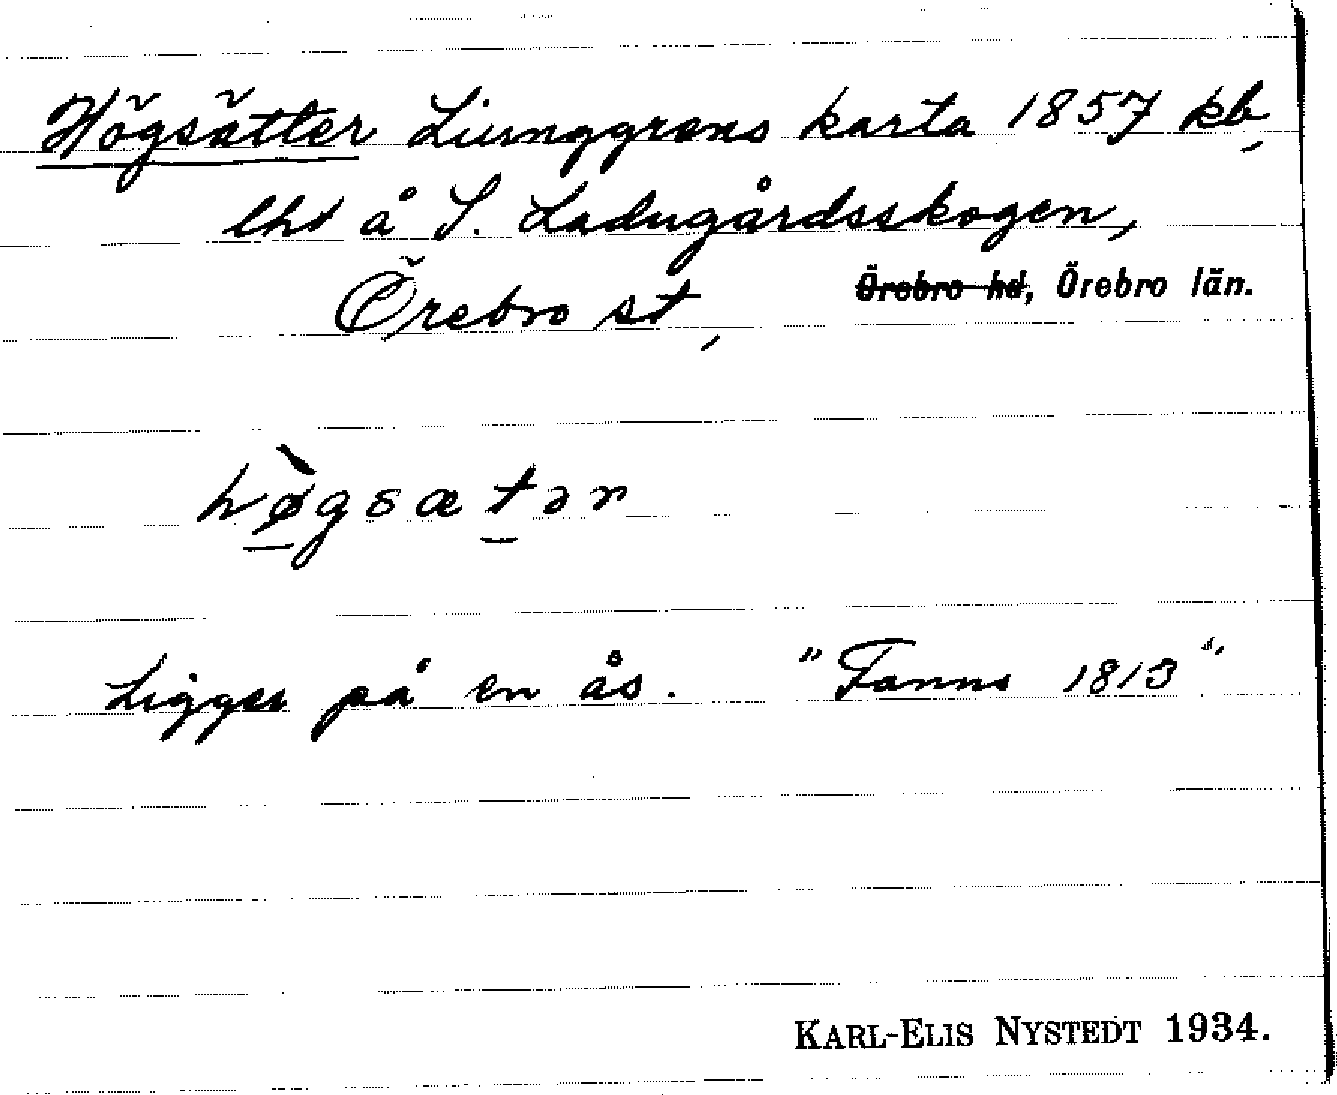 Högsätter Liunggrens karta 1857 kb,
lht å S. Ladugårdsskogen,
Örebro st, Örebro hd, Örebro län.
hø̀gsætər
Ligger på en ås. "Fanns 1813"
KARL-ELIS NYSTEDT 1934.